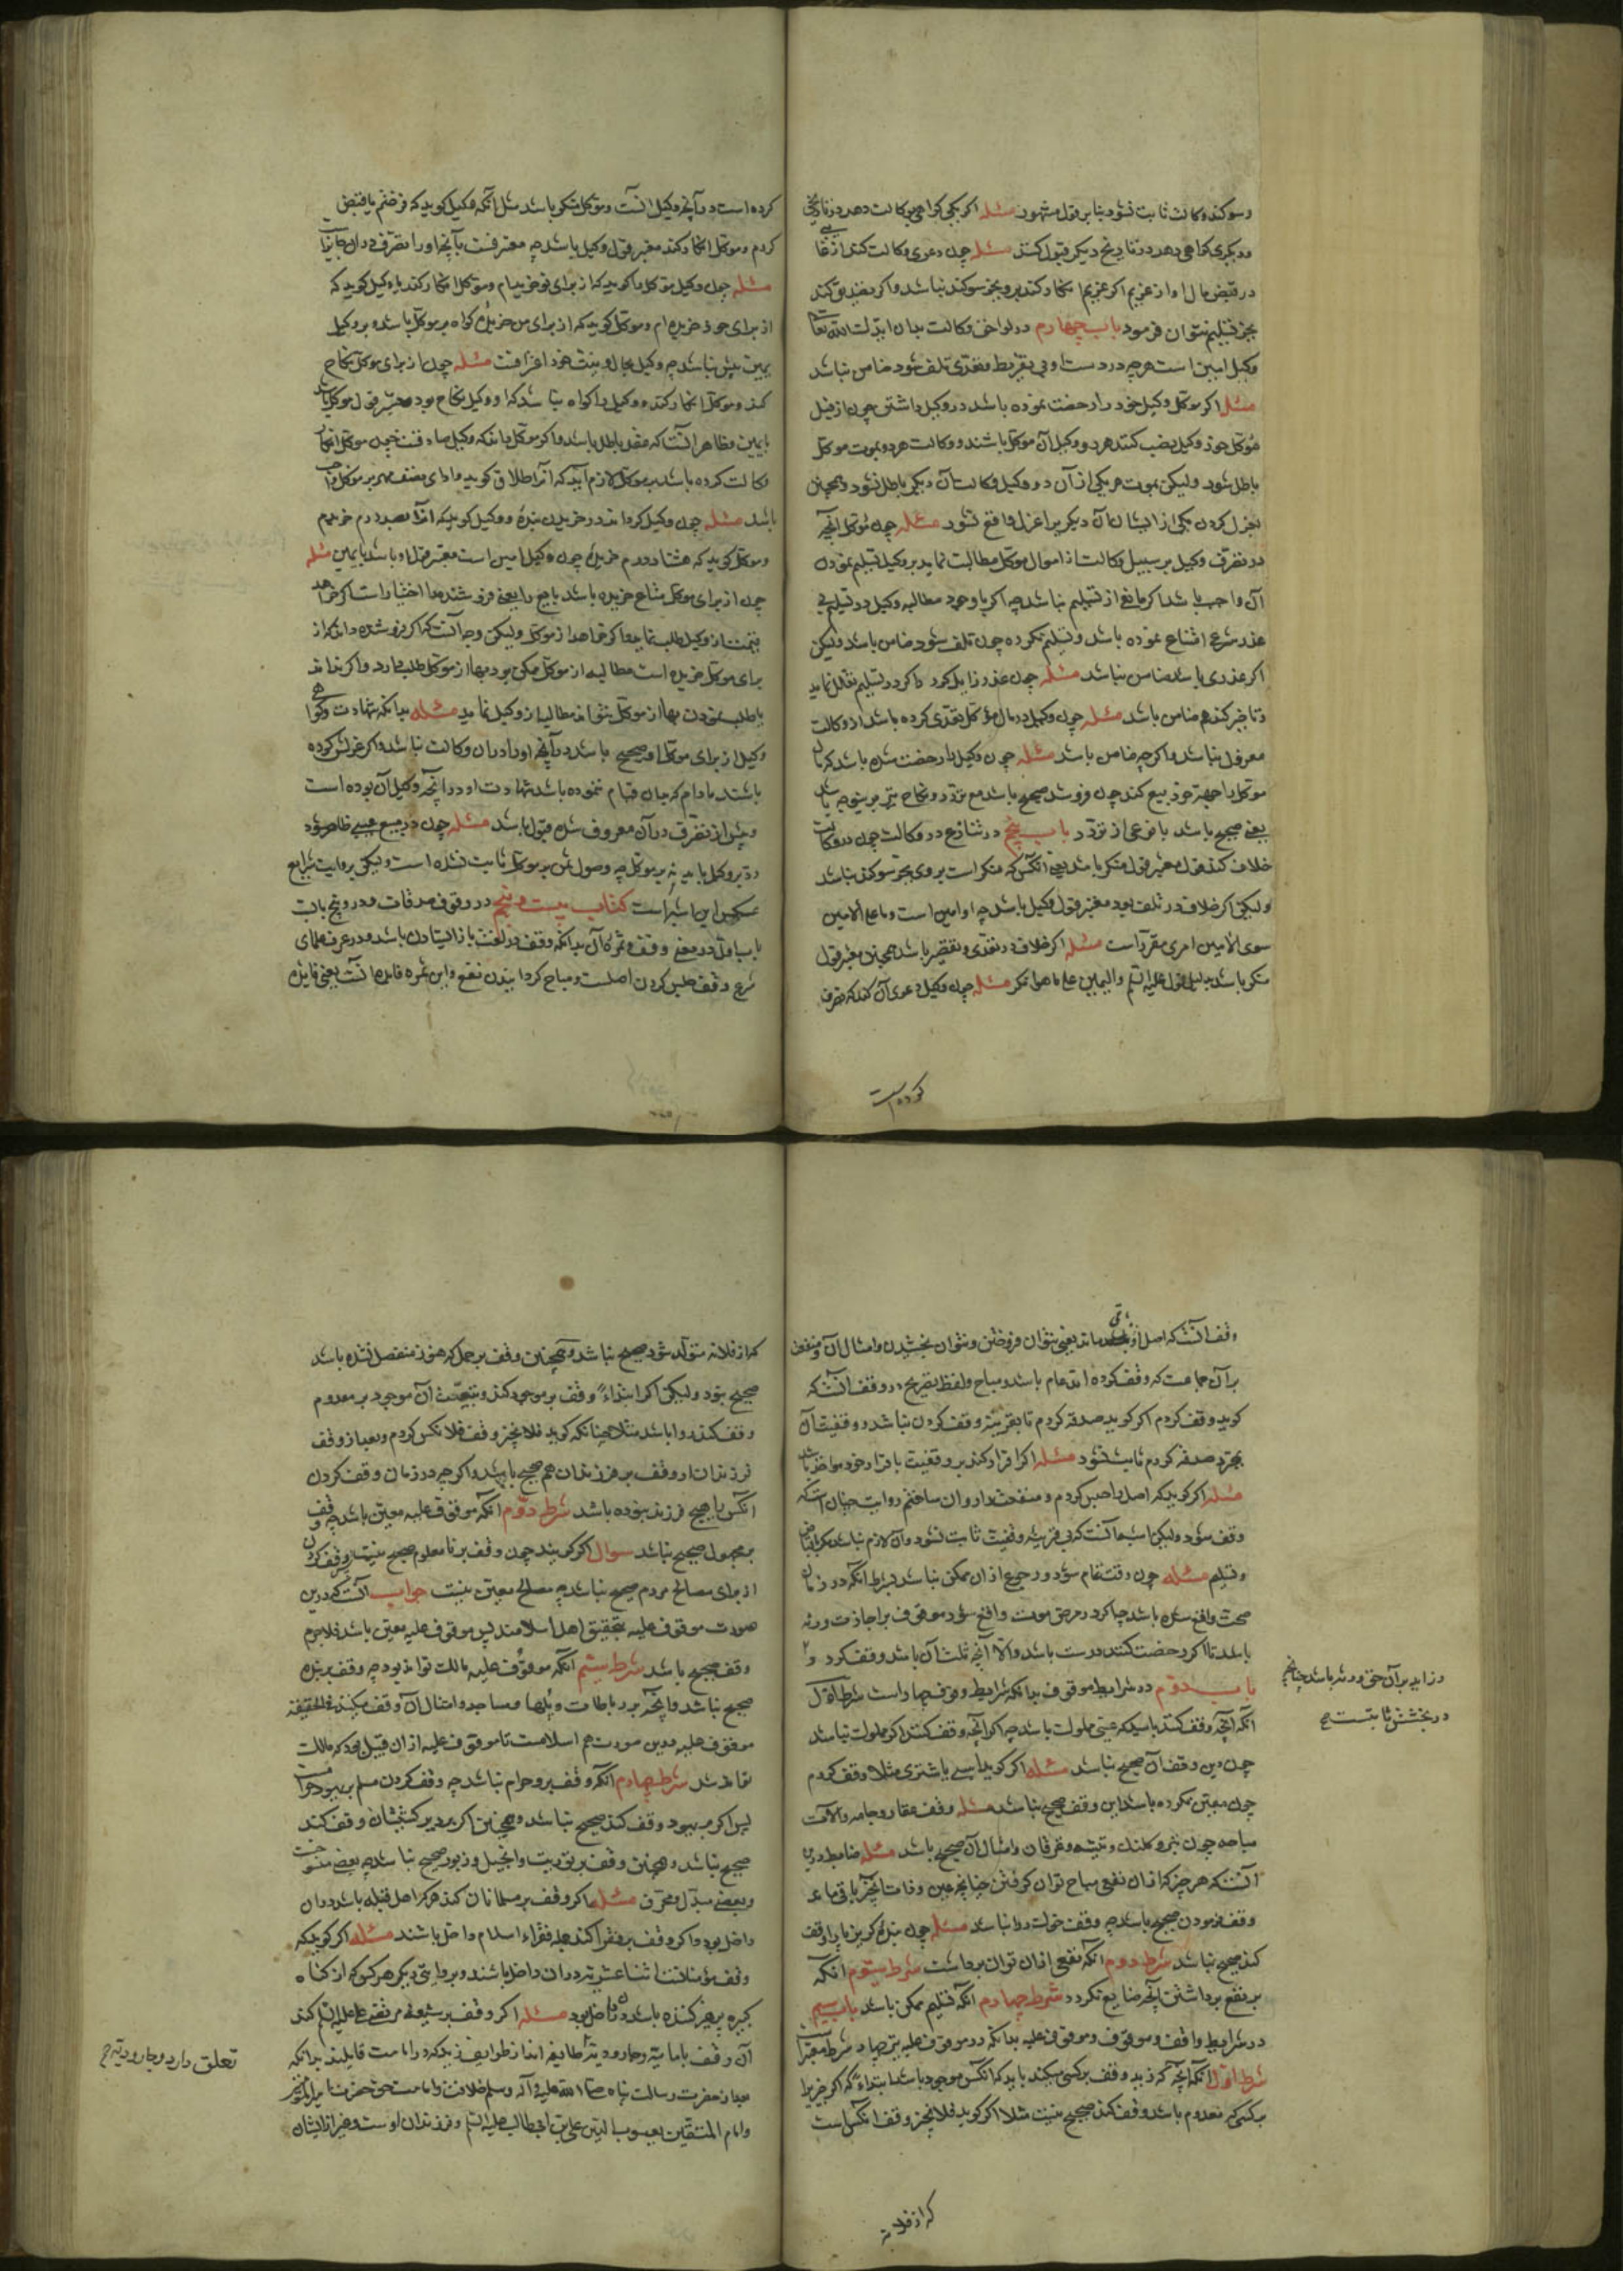 و سوکند وکالت ثابت نشود بنابر قول مشهور مسئله اکر یکی کواهی بوکالت دهد در تاریخی
و دیکری کواهی دهد در تاریخ دیکر قبول کنند مسئله چون دعوی وکالت کند از غا یبی
در قبض مال او از غریم اکر غریم انکار کند برو بجز سوکند نباشد واکر تصدیق کند
بجز تسلیم نتوان فرمود باب چهارم در لواحق وکالت بدان ایدک الله تعالی
وکیل امین است هر چه در دست او بی تفریط و تعدی تلف شود ضامن نباشد
مسئله اکر موکل وکیل خود را رخصت نموده باشد در وکیل داشتن چون از قبل
موکل خود وکیل نصب کند هر دو وکیل آن موکل باشند و وکالت هر دو بموت موکل
باطل شود ولیکن بموت هر یکی از آن دو وکیل وکالت آن دیکر باطل نشود و همچنین
بعزل کردن یکی از ایشان آن دیکر را عزل واقع نشود مسئله چون موکل آنچه
در تصرف وکیل بر سبیل وکالت از اموال موکل مطالبت نماید بر وکیل تسلیم نمودن
آن واجب باشد اکر مانع از تسلیم نباشد چه اکر با وجود مطالبه وکیل در تسلیم بی
عذر شرعی امتناع نموده باشد و تسلیم نکرده چون تلف شود ضامن باشد ولیکن
اکر عذری باشد ضامن نباشد مسئله چون عذر زایل کردد واکر در تسلیم تعلل نماید
و تاخیر کند هم ضامن باشد مسئله چون وکیل در مال موکل تعدی کرده باشد از وکالت
معزول نباشد واکرچه ضامن باشد مسئله چون وکیل را رخصت شده باشد که مال
موکل را جهة خود بیع کند چون فروشد صحیح باشد مع تردد و نکاح نیز برین وجه باشد
یعنی صحیح باشد با نوعی از تردد باب پنجم در تنازع در وکالت چون در وکالت
خلاف کنند قول معتبر قول منکر باشد یعنی آنکس که منکر است بر وی بجز سوکند نباشد
ولیکن اکر خلاف در تلف بود معتبر قول وکیل باشد چه او امین است و ما علی الامین
سوی الامین امری مقرر است مسئله اکر خلاف در تعدی و تقصیر باشد همچنین معتبر قول
منکر باشد بدلیل قول علیه السلم والیمین علی ما هو انکر مسئله چون وکیل دعوی آن کند که تصرف
کرده است
کرده است در آنچه وکیل آنست و موکل منکر باشد مثل آنکه وکیل کوید که فروختم یا قبض
کردم و موکل انکار کند معتبر قول وکیل باشد چه معترفست بآنچه او را تصرف در آن
مسئله چون وکیل موکل را کوید که از برای تو خریدم و موکل انکار کند یا وکیل کوید که
از برای خود خریده ام و موکل کوید که از برای من خریدهٔ کواه بر موکل باشد و بر وکیل
یمین بیش نباشد چه وکیل بحال و نیت خود اعرافست مسئله چون از برای موکل نکاح
کند و موکل انکار کند و وکیل را کواه نباشد که او وکیل نکاح بود معتبر قول موکل باشد
با یمین و ظاهر آنست که عقد باطل باشد و اکر موکل داند که وکیل صادقست چون موکل انکار
وکالت کرده باشد بر موکل لازم آید که آنرا طلاق کوید و ادای نصف مهر بر موکل واجب
باشد مسئله چون وکیل کرداند در خریدن بندهٔ و وکیل کوید که آنرا بصد درم خریدم
و موکل کوید که هشتاد درم خریدهٔ چون وکیل امین است معتبر قول او باشد با یمین مسئله
چون از برای موکل متاع خریده باشد بایع را یعنی فروشنده را اختیار است اکر خواهد
قیمت از وکیل طلب نماید و اکر خواهد از موکل ولیکن وجه آنست که اکر فروشنده داند که از
برای موکل خریده است مطالبه از موکل ممکن بود بها از موکل طلب دارد و اکر نداند
یا طلب نمودن بها از موکل نتواند مطالبه از وکیل نماید مسئله بدانکه شهادت و کواهی
وکیل از برای موکل او صحیح باشد در آنچه او را در آن وکالت نباشد و اکر عزلش کرده
باشند مادام که بدان قیام ننموده باشد شهادت او در آنچه وکیل آن بوده است
و پیش از تصرف در آن معزول شده قبول باشد مسئله چون در مبیع عیبی ظاهر شود
رد بر وکیل باید نه بر موکل چه وصول ثمن بر موکل ثابت نشده است ولیکن بروایت شرایع
عکس این اشهر است کتاب بیست و پنجم در وقوف و صدقات و درو پنج بابست
باب اول در معنی وقف و ثمره آن بدانکه وقف در لغت باز ایستادن باشد و در عرف علمای
شرع وقف حبس کردن اصلست و مباح کردانیدن نفع و این ثمره فایده آنست یعنی فایده
وقف آنست که اصل او باقی ماند یعنی نتوان فروختن و نتوان بخشیدن و امثال آن و منفعت
بر آن جماعت که وقف کرده اند عام باشد و مباح و لفظ صریح در وقف آنست که
کوید وقف کردم اکر کوید صدقه کردم تا بقرینه وقف کردن نباشد و وقفیت آن
بمجرد صدقه کردم ثابت نشود مسئله اکر اقرار کند بر وقفیت باقرار خود مواخذ باشد
مسئله اکر کوید که اصل را حبس کردم و منفعت را روان ساختم روایت چنان است که
وقف شود ولیکن اشبه آنست که بی قرینه وقفیت ثابت نشود و آن لازم نباشد مکر باقباض
و تسلیم مسئله چون وقف تمام شود رجوع از آن ممکن نباشد بشرط آنکه در زمان
صحت واقع شده باشد چه اکر در مرض موت واقع شود موقوف بر اجازت ورثه
باشد تا اکر رخصت کنند درست باشد و الا آنچه ثلث آن باشد وقف کردد و
در زاید بر آن حق ورثه باشد چنانچه
در بخشش ثابتست صح
باب دوم در شرایط موقوف بدانکه شرایط وقف چهار است شرط اول
آنکه آنچه وقف کنند باید که عینی مملوک باشد چه اکر آنچه وقف کنند اکر مملوک نباشد
چون دین وقف آن صحیح نباشد مسئله اکر کوید اسبی یا شتری مثلا وقف کردم
چون معین نکرده باشد این وقف صحیح نباشد مسئله وقف عقار و جامه و آلات
مباحه چون تبر و کلنک و تیشه و غزقان و امثال آن صحیح باشد مسئله ضابط درین
آنست که هر چیز که از آن نفعی مباح توان کرفتن چنانچه عین و ذات آنچیز باقی ماند
وقف نمودن صحیح باشد چه وقف خوک روا نباشد مسئله چون بندهٔ کریز پا را وقف
کند صحیح نباشد شرط دوم آنکه نفعی از آن توان برداشت شرط سیوم آنکه
بر نفع برداشتن آنچه ضایع نکردد شرط چهارم آنکه تسلیم ممکن باشد باب سیم
در شرایط واقف و موقوف و موقوف علیه بدانکه در موقوف علیه نیز چهار شرط معتبر است
شرط اول آنکه آنچه کردید وقف بر کسی میکند باید که آنکس موجود باشد ابتداءً که اکر چیز را
بر کسی که معدوم باشد وقف کند صحیح نیست مثلا اکر کوید فلانچیز وقف آنکس است
که از فلانه
که از فلانه متولد شود صحیح نباشد و همچنین وقف بر حمل که هنوز منفصل نشده باشد
صحیح نبود ولیکن اکر ابتداءً وقف بر موجود کند و بتبعیت آن موجود بر معدوم
وقف کند روا باشد مثلا چنانکه کوید فلانچیز وقف فلانکس کردم و بعد از وقف
فرزندان او وقف بر فرزندان هم صحیح باشد و اکرچه در زمان وقف کردن
آنکس را هیچ فرزند نبوده باشد شرط دوم آنکه موقوف علیه معین باشد چه وقف
بر مجهول صحیح نباشد سوال اکر کویند چون وقف بر نا معلوم صحیح نیست پس وقف کردن
از برای مصالح مردم صحیح نباشد چه مصالح معین نیست جواب آنست که درین
صورت موقوف علیه بتحقیق اهل اسلامند پس موقوف علیه معین باشد فلاجرم
وقف صحیح باشد شرط سیم آنکه موقوف علیه مالک تواند بود چه وقف بر بنده
صحیح نباشد و آنچه بر رباطات و پلها و مساجد و امثال آن وقف میکنند فی الحقیقه
موقوف علیه درین صورت هم اسلامست تا موقوف علیه از آن قبیل بود که مالک
تواند شد شرط چهارم آنکه وقف بر و حرام نباشد چه وقف کردن مسلم بر یهود حرامست
پس اکر بر یهود وقف کند صحیح نباشد و همچنین اکر بر دیر و کنشتشان وقف کند
صحیح نباشد و همچنین وقف بر توریت و انجیل و زبور صحیح نباشد چه بعضی منسوخست
و بعضی مبدل و محرف مسئله اکر وقف بر مسلمانان کند هر که اهل قبله باشد در آن
داخل بود و اکر وقف بر فقرا کند همه فقراء اسلام داخل باشند مسئله اکر کوید که
وقف مؤمنانست اثنا عشریه در آن داخل باشند و بروایتی دیکر هر کس که از کناه
کبیره پرهیز کننده باشد در آن داخل بود مسئله اکر وقف بر شیعهٔ مرتضی علی علیه السلم کند
آن وقف بامامیه و جارودیه تعلق دارد و جارودیه صح طایفه اند از طوایف زیدیه که در امامت قایلند بدانکه
بعد از حضرت رسالت پناه صلی الله علیه و آله وسلم خلافت و امامت حق حضرت امیر المومنین
و امام المتقین یعسوب الدین علی بن ابی طالب علیه السلم و فرزندان اوست و غیر از ایشان